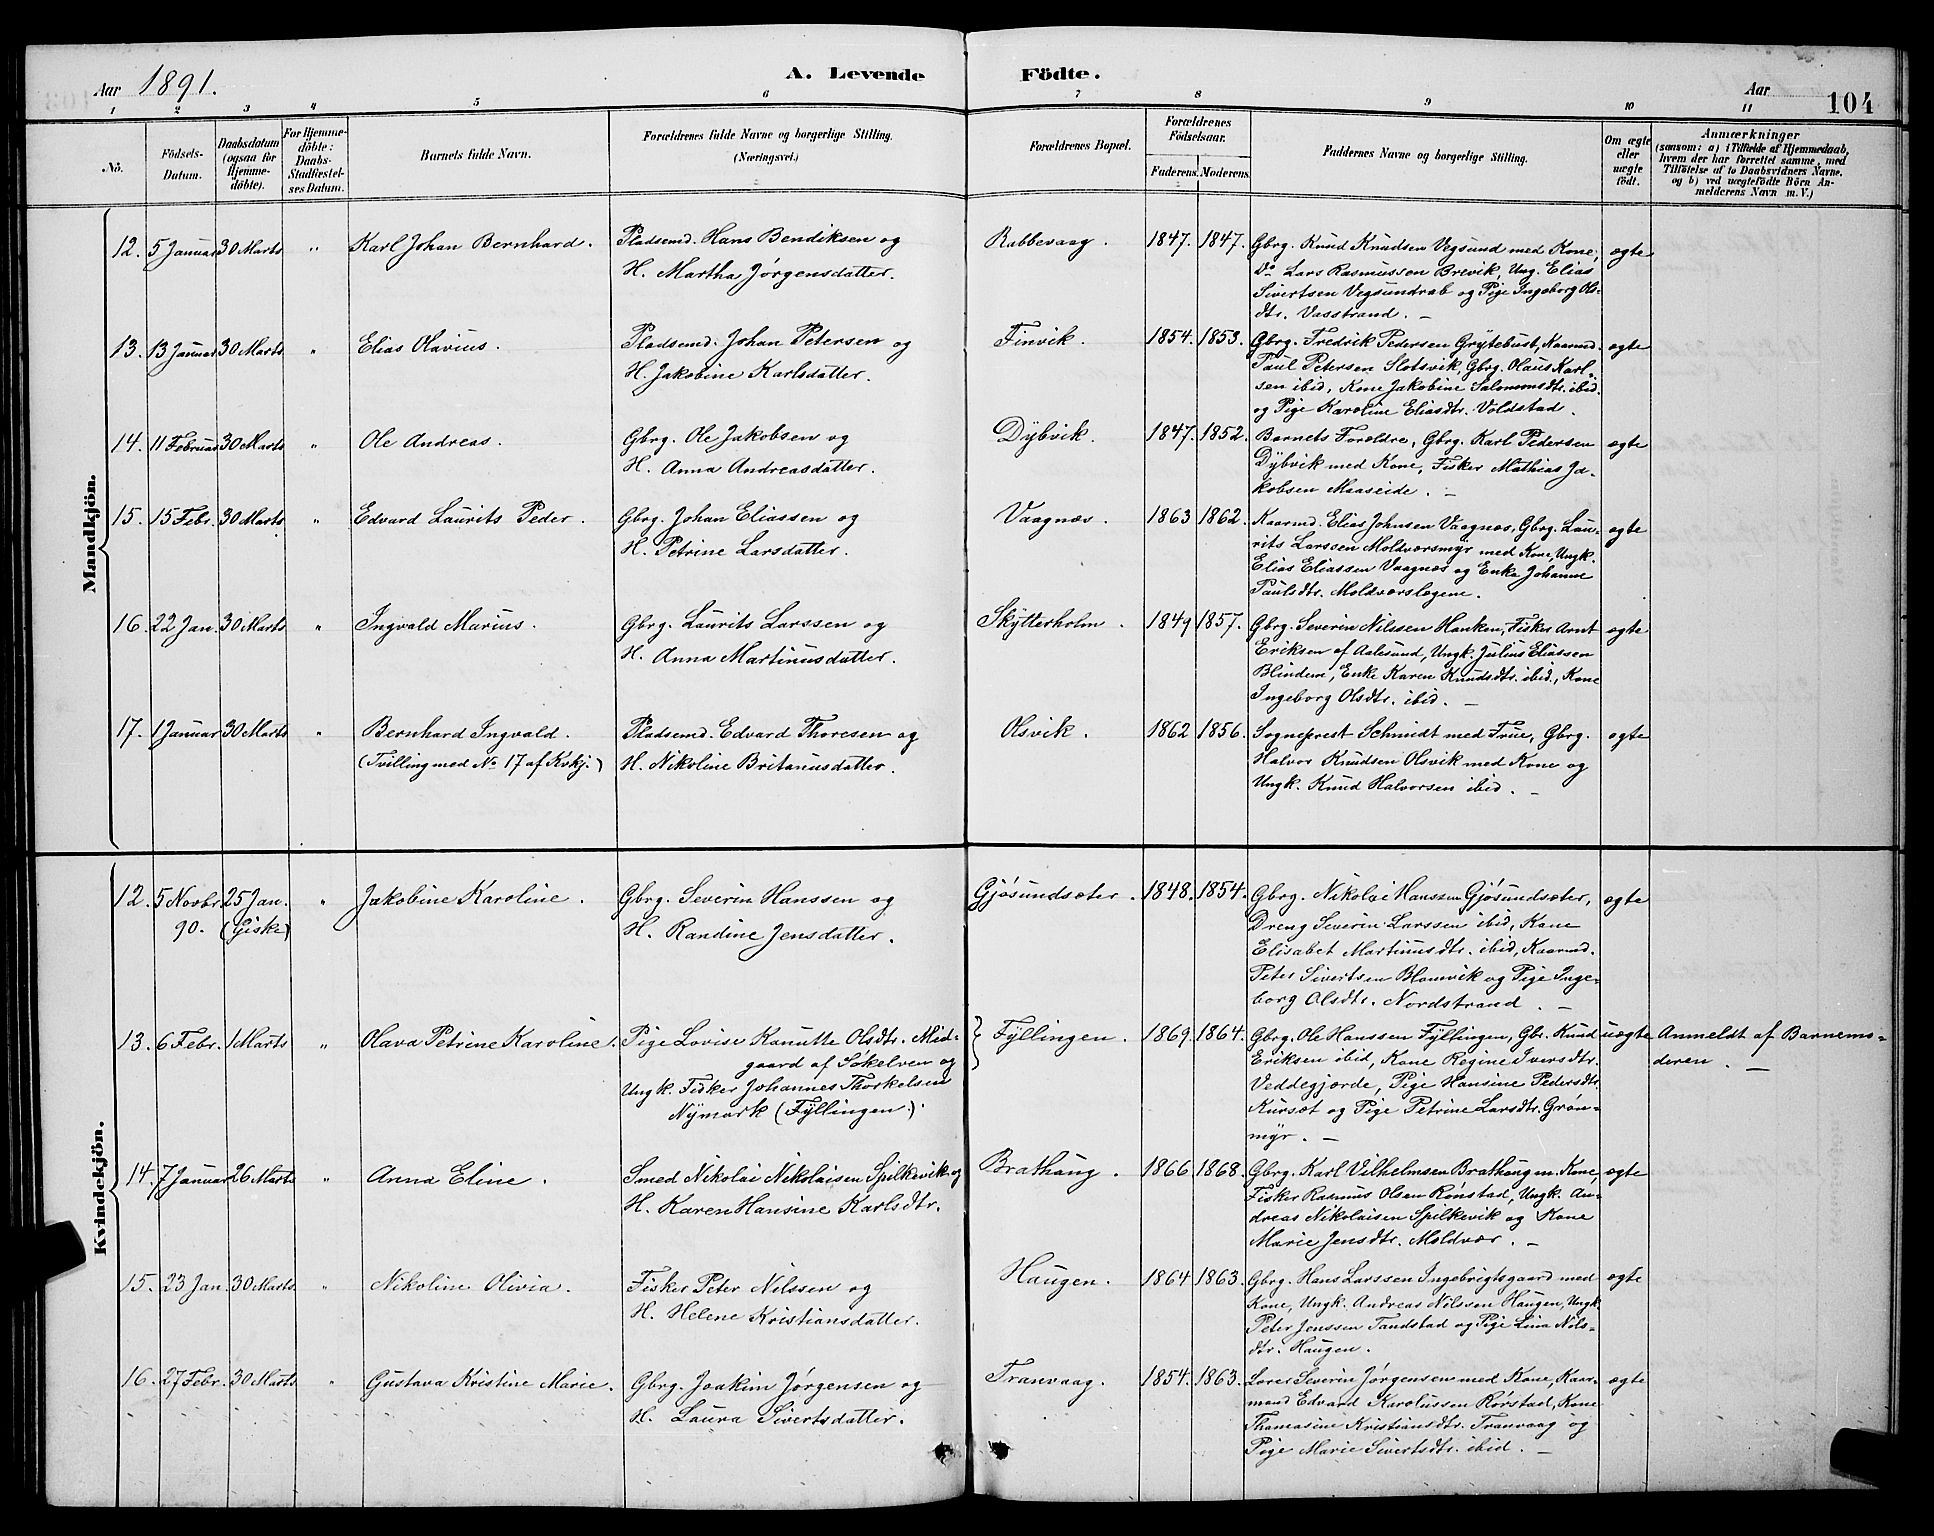 Aar 1891. A. Levende Födte. Aar 104
1 2 3 4 5 6 7 8 9 10 11
No. Födsels-Datum. Daabsdatum (ogsaa for Hjemmedöbte). For Hjemmedöbte: Daabs-Stadfæstelses Datum. Barnets fulde Navn. Forældrenes fulde Navne og borgerlige Stilling. (Næringsvei.) Forældrenes Bopæl. Forældrenes Födselsaar. Faderens. Moderens. Faddernes Navne og borgerlige Stilling. Om ægte eller uægte födt. Anmærkninger (saasom: a) i Tilfælde af Hjemmedaab, hvem der har forrettet samme, med Tilföielse af to Daabsvidners Navne. og b) ved uægtefödte Börn Anmelderens Navn m. V.)
Mandkjön.
12. 5 Januar 30 Marts " Karl Johan Bernhard. Pladsemd. Hans Bendiksen og Rabbevaag. 1847. 1847. Gbrg. Knud Knudsen Vegsund med Kone, ægte
H. Martha Jørgensdatter. Do Lars Rasmussen Brevik, Ung. Elias
Sivertsen Vegsundrab og Pige Ingeborg Ols-
dtr. Vasstrand. —
13. 13 Januar 30 Marts " Elias Olavius. Pladsemd. Johan Petersen og Finvik. 1854. 1853. Gbrg. Fredrik Pedersen Grytebust, Kaarmd. ægte
H. Jakobine Karlsdatter. Paul Petersen Slotsvik, Gbrg. Olaus Karl-
sen ibid, Kone Jakobine Salomonsdtr. ibid.
og Pige Karoline Eliasdtr. Voldstad.
14. 11 Februar 30 Marts " Ole Andreas. Gbrg. Ole Jakobsen og Dybvik. 1847. 1852. Barnets Forældre, Gbrg. Karl Pedersen ægte
H. Anna Andreasdatter. Dybvik med Kone, Fisker Mathias Ja-
kobsen Maaseide. —
15. 15 Febr. 30 Marts " Edvard Laurits Peder. Gbrg. Johan Eliassen og Vaagnæs. 1863 1862. Kaarmd. Elias Johnsen Vaagnæs, Gbrg. Lau- ægte
H. Petrine Larsdatter. rits Larssen Moldværsmyr med Kone, Ungk.
Elias Eliassen Vaagnæs og Enke Johanne
Paulsdtr. Moldværslegene.
16. 22 Jan. 30 Marts " Ingvald Marius. Gbrg. Laurits Larssen og Skytterholm. 1849 1857. Gbrg. Severin Nilssen Hanken, Fisker Arnt ægte
H. Anna Martinusdatter. Eriksen af Aalesund, Ungk. Julius Eliassen
Blindem, Enke Karen Knudsdtr. ibid., Kone
Ingeborg Olsdtr. ibid. —
17. 1 Januar 30 Marts " Bernhard Ingvald. Pladsemd. Edvard Thoresen og Olsvik. 1862 1856. Sogneprest Schmidt med Frue, Gbrg. ægte
(Tvilling med No 17 af Kvkj.) H. Nikoline Britanusdatter. Halvor Knudsen Olsvik med Kone og
Ungk. Knud Halvorsen ibid. —
Kvindekjön.
12. 5 Novbr. 25 Jan. " Jakobine Karoline. Gbrg. Severin Hanssen og Gjøsundsæter. 1848. 1854. Gbrg. Nikolai Hanssen Gjøsundsæter, ægte
90. (Giske) H. Randine Jensdatter. Dreng Severin Larssen ibid, Kone
Elisabet Martinusdtr. ibid, Kaarmd.
Peter Sivertsen Blomvik og Pige Inge-
borg Olsdtr. Nordstrand. —
13. 6 Febr. 1 Marts " Olava Petrine Karoline. Pige Lovise Kanutte Olsdtr. Mid- } Fyllingen. 1869. 1864. Gbrg. Ole Hanssen Fyllingen, Gbr. Knud uægte Anmeldt af Barnemo-
gaard af Søkelven og Eriksen ibid, Kone Regine Iversdtr. deren. —
Ungk. Fisker Johannes Thorkelsen Veddegjerde, Pige Hansine Pedersdtr.
Nymark (Fyllingen). Kursæt og Pige Petrine Larsdtr. Grøn-
myr. —
14. 7 Januar 26 Marts " Anna Eline. Smed Nikolai Nikolaisen Spilkevik og Brathaug. 1866 1868. Gbrg. Karl Vilhelmsen Brathaug m. Kone, ægte
H. Karen Hansine Karlsdtr. Fisker Rasmus Olsen Rønstad, Ungk. An-
dreas Nikolaisen Spilkevik og Kone
Marie Jensdtr. Moldvær. —
15. 23 Jan. 30 Marts " Nikoline Olivia. Fisker Peter Nilssen og Haugen. 1864 1863. Gbrg. Hans Larssen Ingebrigtsgaard med ægte
H. Helene Kristiansdatter. Kone, Ungk. Andreas Nilssen Haugen, Ungk.
Peter Jenssen Tandstad og Pige Lina Nils-
dtr. Haugen.
16. 27 Febr. 30 Marts " Gustava Kristine Marie. Gbrg. Joakim Jørgensen og Tranvaag. 1854. 1863. Severin Jørgensen med Kone, Kaar- ægte
H. Laura Sivertsdatter. mand Edvard Karolussen Rørstad, Kone
Thomasine Kristiansdtr. Tranvaag og
Pige Marie Sivertsdtr. ibid. —